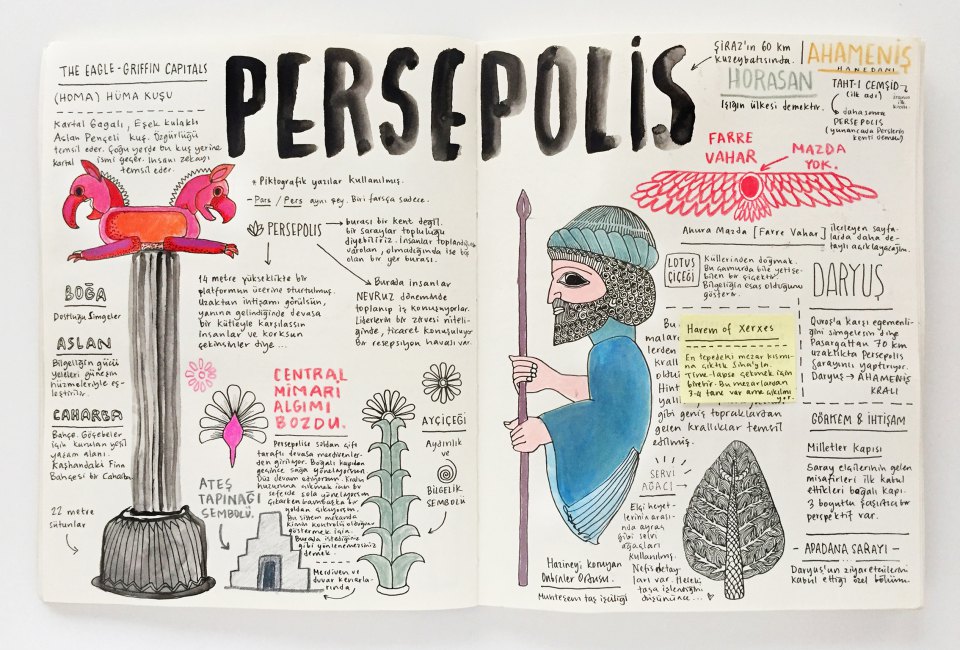 PERSEPOLİS
THE EAGLE-GRIFFIN CAPITALS
(HOMA) HÜMA KUŞU
Kartal Gagalı, Eşek kulaklı
Aslan Pençeli kuş. Özgürlüğü
temsil eder. Çoğu yerde bu kuş yerine
kartal ismi geçer. İnsani zekayı
temsil eder.
* Piktografik yazılar kullanılmış.
- Pars / Pers aynı şey. Biri farsça sadece.
PERSEPOLIS
burası bir kent değil,
bir saraylar topluluğu
diyebiliriz. İnsanlar toplandığında
varolan, olmadığında ise boş
olan bir yer burası.
14 metre yükseklikte bir
platformun üzerine oturtulmuş.
Uzaktan ihtişamı görülsün,
yanına gelindiğinde devasa
bir kütleyle karşılassın
insanlar ve korksun
çekinsinler diye...
Burada insanlar
NEVRUZ döneminde
toplanıp iş konuşuyorlar.
Liderlerin bir zirvesi niteli-
ğinde, ticaret konuşuluyor
Bir resepsiyon havası var.
BOĞA
Dostluğu Simgeler
ASLAN
Bilgeliğin gücü
yeleleri güneşin
hüzmeleriyle eş-
leştirilir.
CAHARBA
Bahçe. Göçebeler
için kurulan yeşil
yaşam alanı.
Kashandaki Fina
Bahçesi bir Caharba
22 metre
sütunlar
CENTRAL
MİMARİ
ALGIMI
BOZDU.
Persepolise soldan çift
taraflı devasa merdivenler-
den giriliyor. Boğalı kapıdan
geçince sağa yöneliyorsun
Düz devam ediyorsun. Kralın
huzuruna çıkmak için bir
seferide sola yöneliyorsun
Çıkarken bambaşka bir
yoldan çıkıyorsun.
Bu sistem mekanda
kimin kontrolü olduğunu
göstermek için.
Burada istediğiniz
gibi yönlenemezsiniz
demek.
ATEŞ
TAPINAĞI
SEMBOLÜ.
Merdiven ve
duvar kenarla-
rında
AYÇİÇEĞİ
Aydınlık
ve
BİLGELİK
SEMBOLÜ
ŞİRAZ'ın 60 km
kuzeybatısında.
HORASAN
Işığın ülkesi demektir.
AHAMENİŞ
HANEDANI
TAHT-I CEMŞİD
(ilk adı)
daha sonra
PERSEPOLIS
(yunancada Perslerin
kenti demek)
FARRE
VAHAR
MAZDA
YOK.
Ahura Mazda [Farre Vahar]
ilerleyen sayfa-
larda daha de-
taylı açıklayacağım.
LOTUS
ÇİÇEĞİ
Küllerinden doğmak.
Bu çamurda bile yetişe-
bilen bir çiçektir.
Bilgeliğin esas olduğunu
gösterir.
DARYUŞ
Quroş'a karşı egemenli-
ğini simgelesin diye
Pasargattan 70 km
uzaklıkta Persepolis
Sarayını yaptırıyor.
Daryuş → AHAMENİŞ
KRALI
Harem of Xerxes
En tepedeki mezar kısmı-
na çıktık Sina'yla.
Time-lapse çekmek için
birebir. Bu mezarlardan
3-4 tane var ama çıkılmı
yor.
Bu
malar
lerden
krall
oldu
Hint
yalı
gibi geniş topraklardan
gelen krallıklar temsil
edilmiş.
GÖRKEM & İHTİŞAM
Milletler Kapısı
Saray elçilerinin gelen
misafirleri ilk kabul
ettikleri boğalı kapı.
3 boyutlu şaşırtıcı bir
perspektif var.
- APADANA SARAYI -
Daryuş'un ziyaretcilerini
kabul ettiği özel bölüm.
SERVİ
AĞACI
Elçi heyet-
lerinin arası-
nda ayraç
gibi selvi
ağaçları
kullanılmış.
Nefis detay-
ları var. Heleki
taşa işlendiğini
düşününce...
Hazineyi koruyan
Ölümsüzler Ordusu.
Muhteşem taş işçiliği